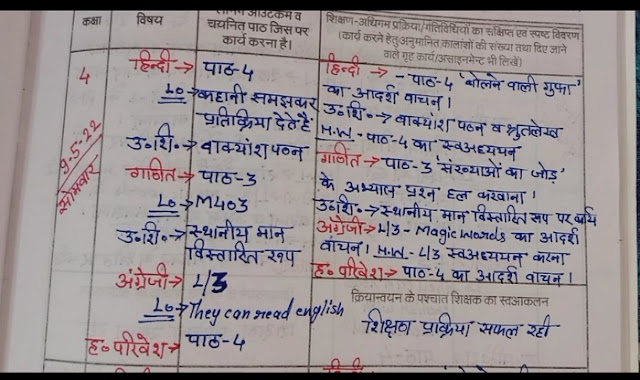 कक्षा
विषय
लर्निंग आउटकम व
चयनित पाठ जिस पर
कार्य करना है।
शिक्षण-अधिगम प्रक्रिया/गतिविधियों का संक्षिप्त एवं स्पष्ट विवरण
(कार्य करने हेतु अनुमानित कालांशों की संख्या तथा दिए जाने
वाले गृह कार्य/असाइनमेन्ट भी लिखें)
4
9.5.22
सोमवार
हिन्दी → पाठ-4
Lo → कहानी समझकर
प्रतिक्रिया देते हैं
उ॰शि॰→ वाक्यांश पठन
गणित → पाठ-3
Lo → M403
उ॰शि॰→ स्थानीय मान
विस्तारित रूप
अंग्रेजी→ L/3
Lo → They can read english
ह॰ परिवेश→ पाठ-4
हिन्दी → - पाठ-4 'बोलने वाली गुफा'
का आदर्श वाचन।
उ॰शि॰→ वाक्यांश पठन व श्रुतलेख
H.W.- पाठ-4 का स्वअध्ययन
गणित→ पाठ-3 'संख्याओं का जोड़'
के अभ्यास प्रश्न हल करवाना।
उ॰शि॰→ स्थानीय मान विस्तारित रूप पर कार्य
अंग्रेजी→ L/3 - Magic Words का आदर्श
वाचन। H.W.- L/3 स्वअध्ययन करना
ह॰ परिवेश→ पाठ-4 का आदर्श वाचन।
क्रियान्वयन के पश्चात शिक्षक का स्वआकलन
शिक्षण प्रक्रिया सफल रही